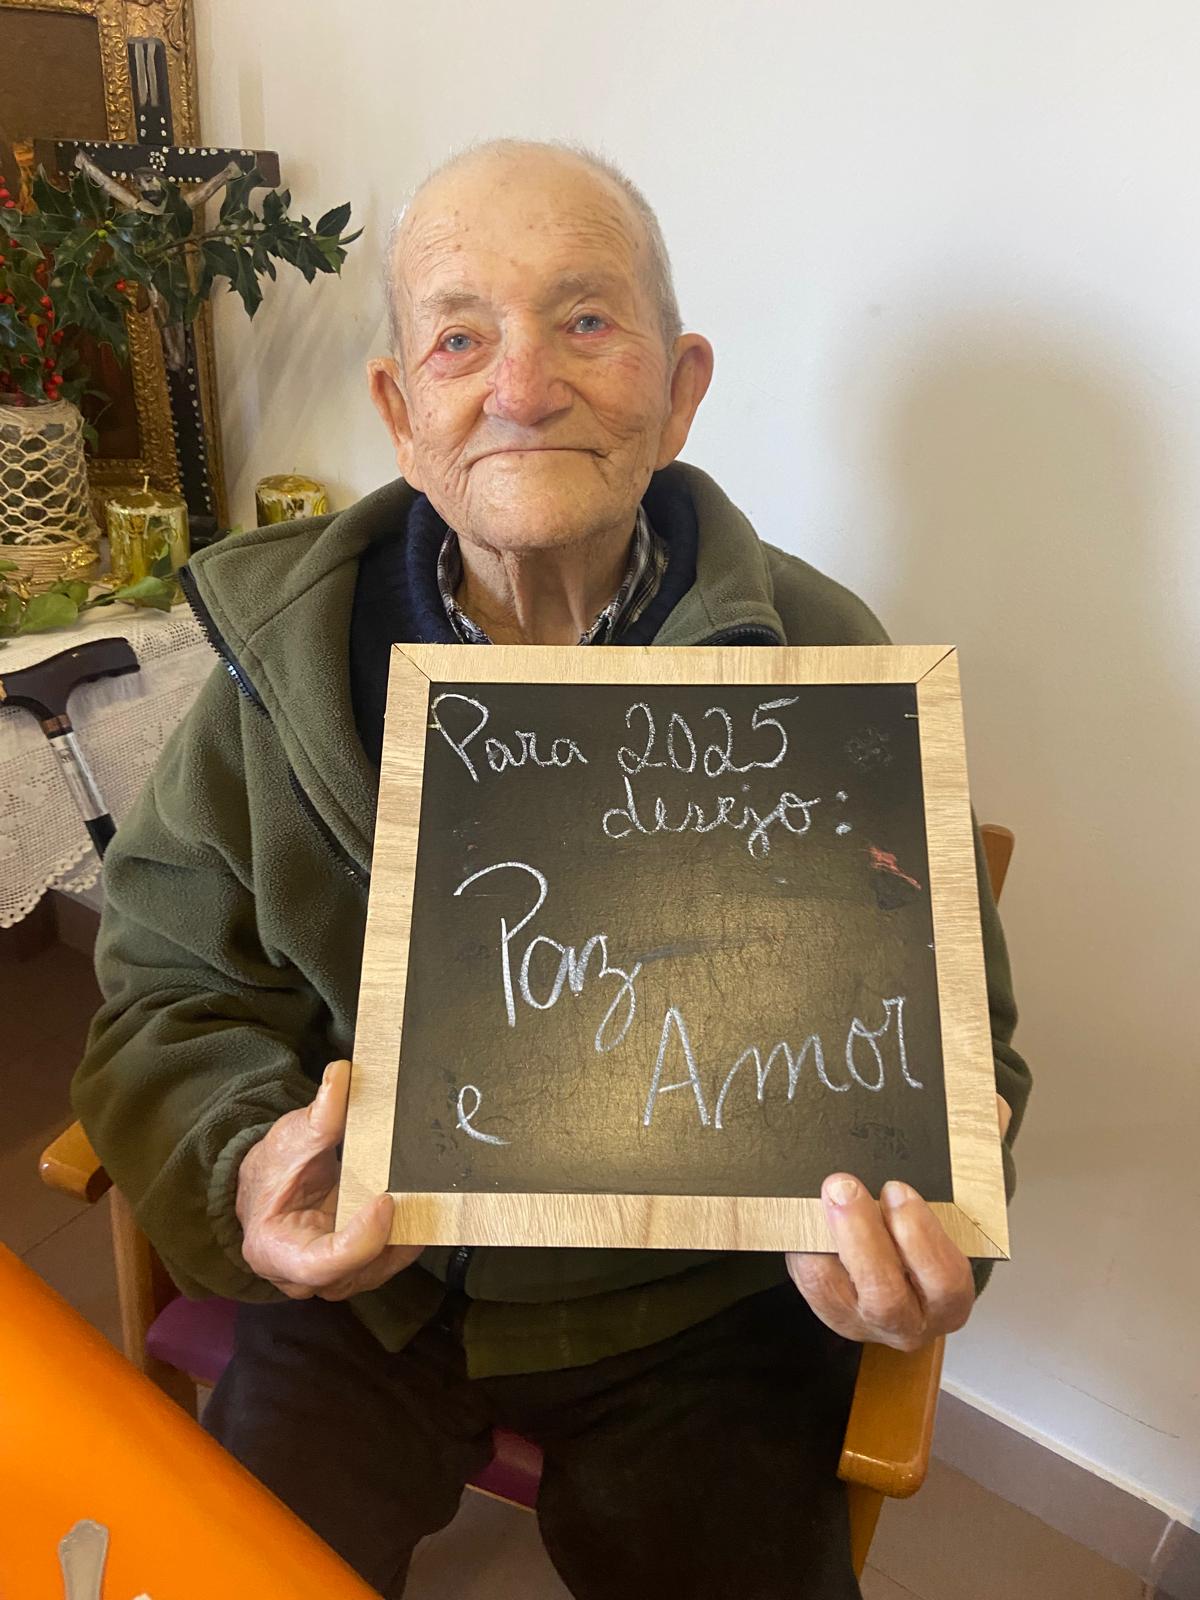 Para 2025
desejo:
Paz
e Amor